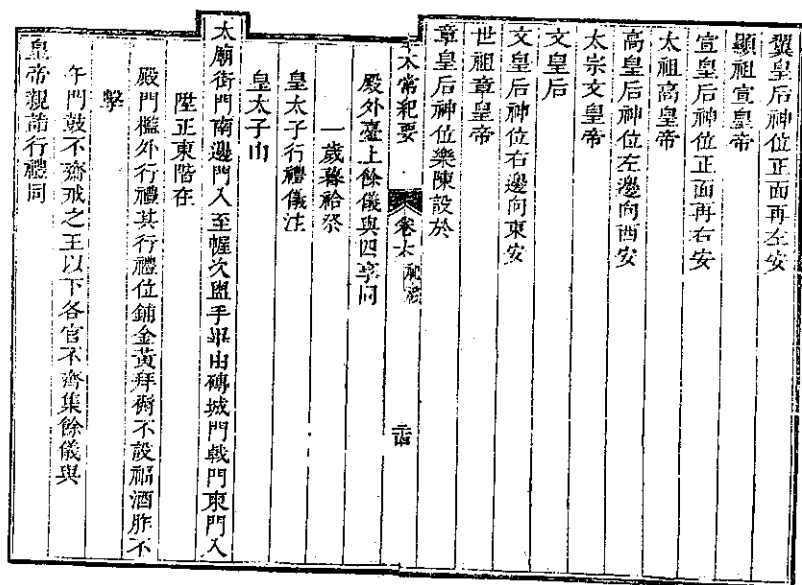 翼皇后神位正面再左安
顯祖宣皇帝
宣皇后神位正面再右安
太祖高皇帝
高皇后神位左邊向西安
太宗文皇帝
文皇后
文皇后神位右邊向東安
世祖章皇帝
章皇后神位樂陳設於
太常紀要
卷六
殿外臺上餘儀與四享同
一歲暮祫祭
皇太子行禮儀注
皇太子由
太廟街門南邊門入至幄次盥手畢由磚城門戟門東門入
陞正東階在
殿門檻外行禮其行禮位鋪金黃拜褥不設福酒胙不
擊
午門鼓不齋戒之王以下各官不齊集餘儀與
皇帝親詣行禮同